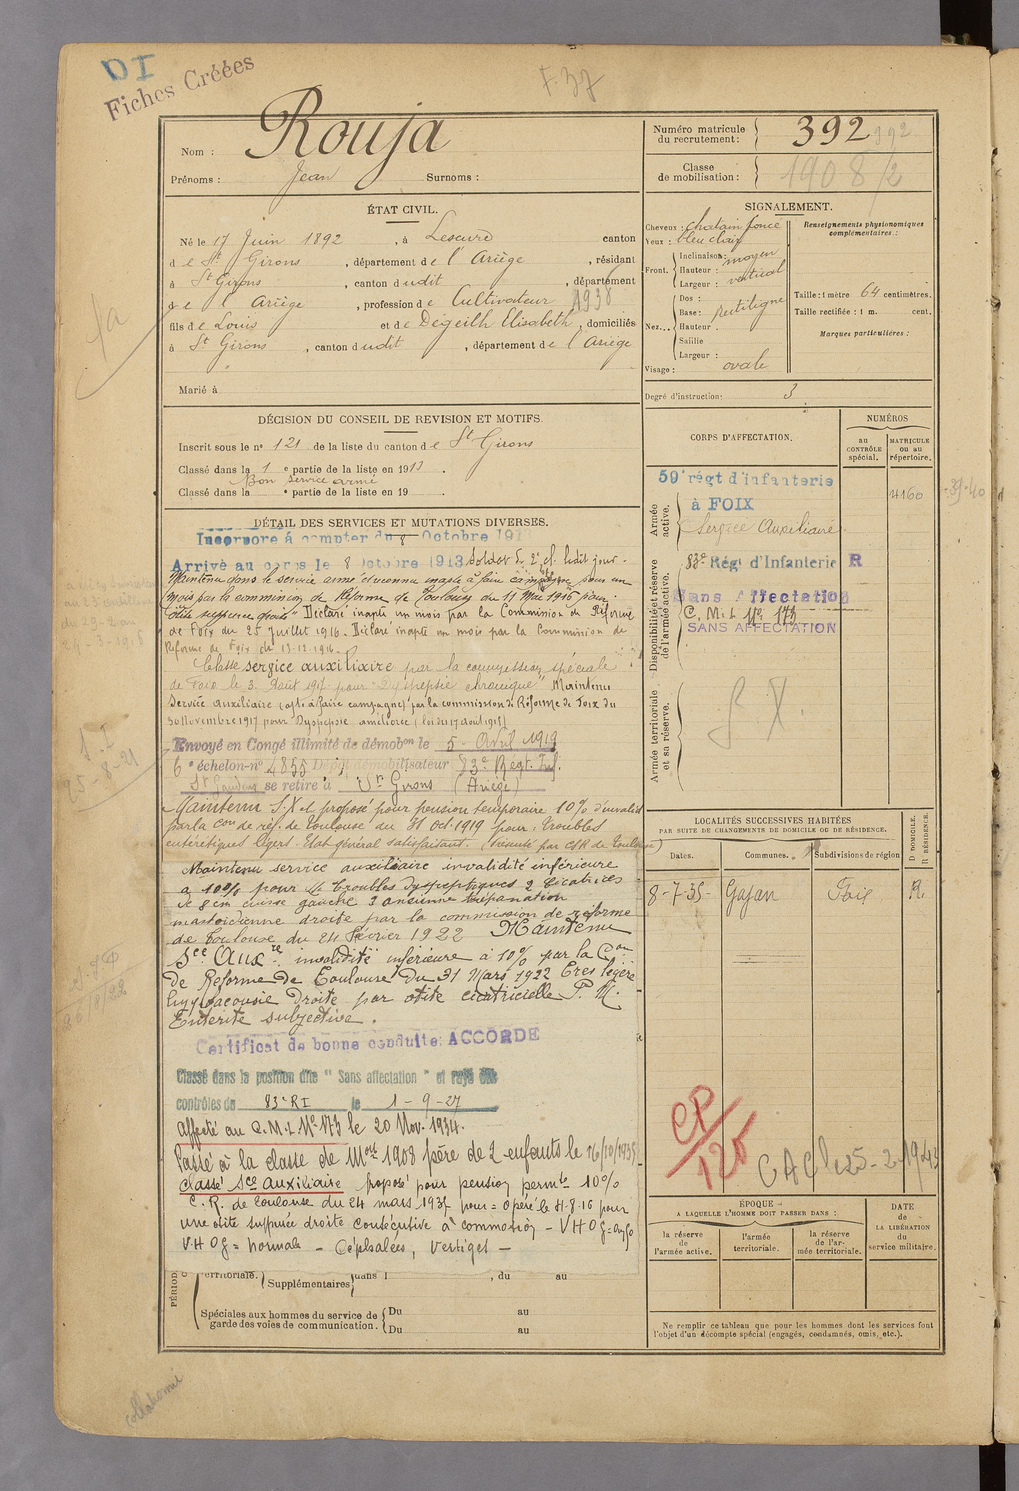 DI
Fiches Créées
F. 37
Nom : Rouja
Prénoms : Jean Surnoms :
Numéro matricule du recrutement : 392 392
Classe de mobilisation : 1908/2
ÉTAT CIVIL.
Né le 17 Juin 1892, à Lescure canton
de St Girons, département de l'Ariège, résidant
à St Girons, canton dudit, département
de l'Ariège, profession de Cultivateur 1938
fils de Louis et de Dégeilh Elisabeth, domiciliés
à St Girons, canton dudit, département de l'Ariège
Marié à
SIGNALEMENT.
Cheveux : chatain foncé
Yeux : bleu clair
Front. Inclinaison : moyen
Hauteur : vertical
Largeur :
Nez... Dos :
Base : Rectiligne
Hauteur.
Saillie
Largeur :
Visage : ovale
Renseignements physionomiques complémentaires :
Taille : 1 mètre 64 centimètres.
Taille rectifiée : 1 m. cent.
Marques particulières :
Degré d'instruction : 3
DÉCISION DU CONSEIL DE REVISION ET MOTIFS.
Inscrit sous le n° 121 de la liste du canton de St Girons
Classé dans la 1e partie de la liste en 1913.
Bon service armé
Classé dans la e partie de la liste en 19 .
DÉTAIL DES SERVICES ET MUTATIONS DIVERSES.
Incorporé à compter du 8 Octobre 191
Arrivé au corps le 8 Octobre 1913 Soldat de 2e cl. ledit jour.
Maintenu dans le service armé et reconnu inapte à faire campagne pour un
mois par la commission de Réforme de Toulouse du 11 Mai 1916 pour
otite suppurée droite. Déclaré inapte un mois par la Commission de Réforme
de Foix du 25 Juillet 1916. Déclaré inapte un mois par la Commission de
Réforme de Foix du 13-12-1916.
Classé service auxiliaire par la commission spéciale
de Foix le 3 Août 1917 pour "Dyspepsie chronique" Maintenu
Service auxiliaire (apte à faire campagne) par la commission de Réforme de Foix du
30 Novembre 1917 pour Dyspepsie améliorée (loi du 17 août 1915)
Envoyé en Congé illimité de démobon le 5 Avril 1919
6e échelon-n° 4855 Dépôt démobilisateur 83e Régt Inf.
St Gaudens se retire à St Girons (Ariège)
Maintenu S.X et proposé pour pension temporaire 10% d'invalid
par la Con de réf. de Toulouse du 31 Oct. 1919 pour : Troubles
entéretiques légers. Etat général satisfaisant.
Maintenu service auxiliaire invalidité inférieure
à 10% pour 1° troubles dyspeptiques 2 cicatrices
de 8 cm cuisse gauche 3 ancienne trépanation
mastoidienne droite par la commission de réforme
de Toulouse du 24 Février 1922 Maintenu
Sce Auxre invalidité inférieure à 10% par la Con
de Reforme de Toulouse du 31 Mars 1922 Très légère
hypoacousie droite par otite cicatricielle P. M.
Entérite subjective.
Certificat de bonne conduite : ACCORDÉ
Classé dans la position dite "Sans affectation" et rayé des
contrôles de 83e RI le 1-9-27
affecté au C.M.I. N° 173 le 20 Nov. 1934.
Passé à la classe de Mon 1908 père de 2 enfants le 16/10/1935
classé Sce Auxiliaire proposé pour pension permte 10%
C. R. de Toulouse du 24 mars 1937 pour = Opéré le 31-8-16 pour
une otite suppurée droite consécutive à commotion -
V.H Og = normale - Céphalées, Vertiges -
PÉRIOD
territoriale. Supplémentaires dans l , du au
Spéciales aux hommes du service de garde des voies de communication. Du au
Du au
CORPS D'AFFECTATION.
NUMÉROS
au CONTRÔLE spécial.
MATRICULE ou au répertoire.
Armée active.
59e régt d'infanterie
à FOIX
4160
Service Auxiliaire
Disponibilité et réserve de l'armée active.
83e Régt d'Infanterie R
Sans Affectation
C. M. I. N° 173
SANS AFFECTATION
Armée territoriale et sa réserve.
S X.
LOCALITÉS SUCCESSIVES HABITÉES
PAR SUITE DE CHANGEMENTS DE DOMICILE OU DE RÉSIDENCE.
D. DOMICILE. R. RÉSIDENCE.
Dates. Communes. Subdivisions de région
8-7-35- Gajan Foix R.
CP/125
ÉPOQUE
A LAQUELLE L'HOMME DOIT PASSER DANS :
la réserve de l'armée active.
l'armée territoriale.
la réserve de l'armée territoriale.
DATE de LA LIBÉRATION du service militaire.
Ne remplir ce tableau que pour les hommes dont les services font
l'objet d'un décompte spécial (engagés, condamnés, omis, etc.).